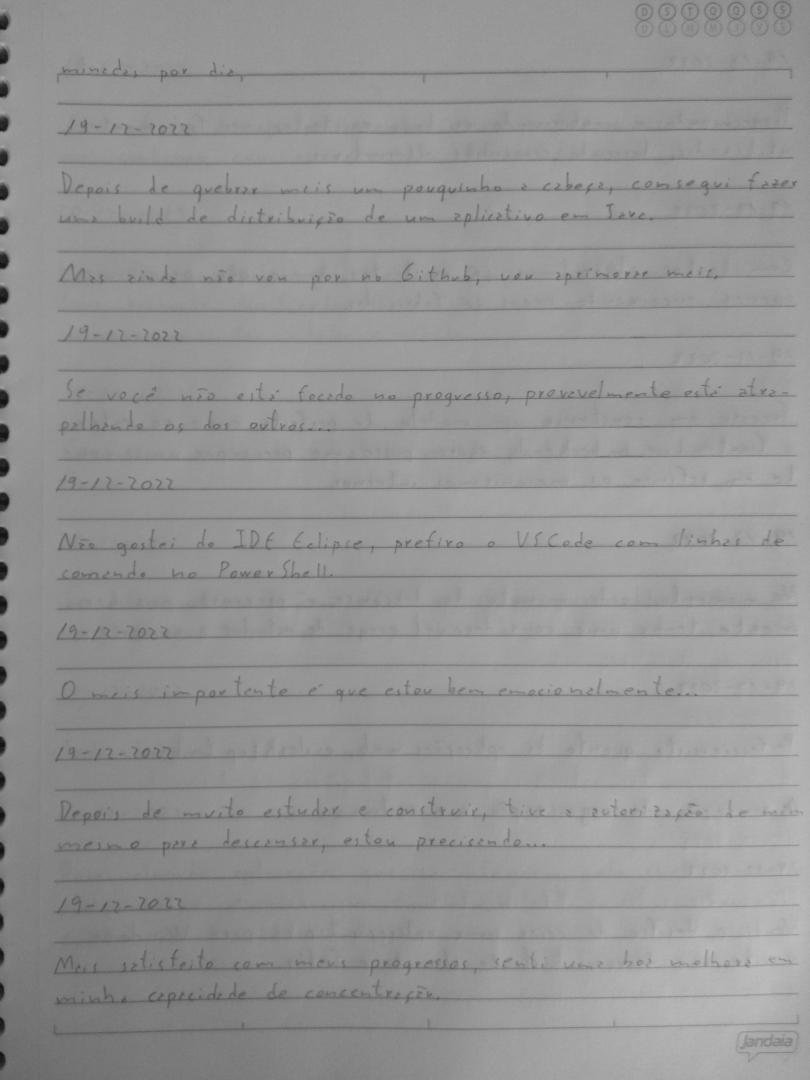 D S T Q Q S S
minadas por dia.
19-12-2022
Depois de quebrar mais um pouquinho a cabeça, consegui fazer
uma build de distribuição de um aplicativo em Java.
Mas ainda não vou por no Github, vou aprimorar mais.
19-12-2022
Se você não está focado no progresso, provavelmente está atra-
palhando os dos outros...
19-12-2022
Não gostei do IDE Eclipse, prefiro o VSCode com linhas de
comando no PowerShell.
19-12-2022
O mais importante é que estou bem emocionalmente...
19-12-2022
Depois de muito estudar e construir, tive a autorização de mim
mesmo para descansar, estou precisando...
19-12-2022
Mais satisfeito com meus progressos, senti uma boa melhora em
minha capacidade de concentração.
jandaia